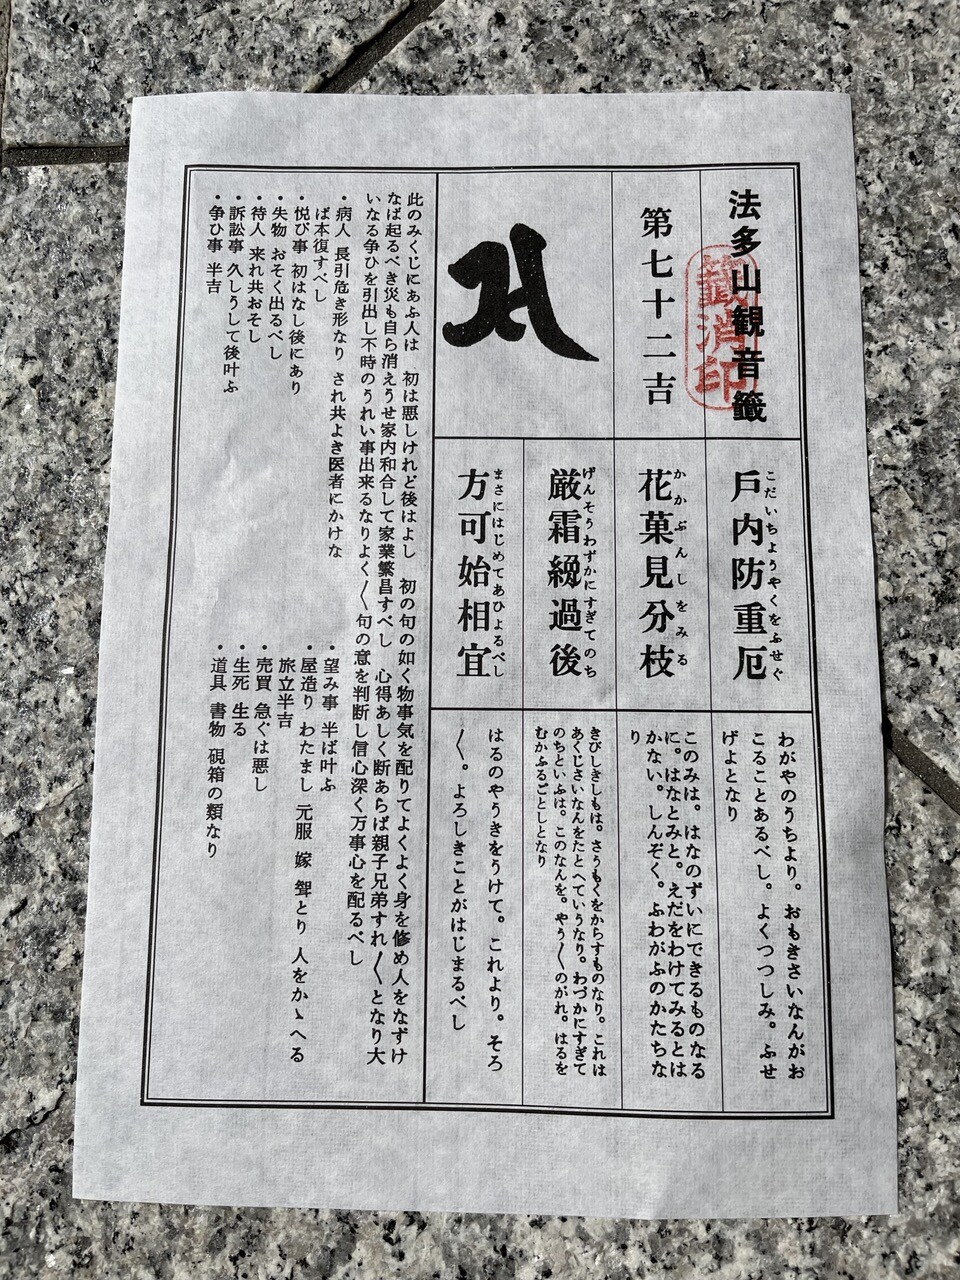 法多山観音籤
籤消印
第七十二吉
戶内防重厄
こだいちょうやくをふせぐ
花菓見分枝
かかぶんしをみる
厳霜纔過後
げんそうわずかにすぎてのち
方可始相宜
まさにはじめてあひよるべし
わがやのうちより。おもきさいなんがお
こることあるべし。よくつつしみ。ふせ
げよとなり
このみは。はなのずいにできるものなる
に。はなとみと。えだをわけてみるとは
かない。しんぞく。ふわがふのかたちな
り
きびしきしもは。さうもくをからすものなり。これは
あくじさいなんをたとへていうなり。わづかにすぎて
のちといふは。このなんを。やう〳〵のがれ。はるを
むかふるごとしとなり
はるのやうきをうけて。これより。そろ
〳〵。よろしきことがはじまるべし
此のみくじにあふ人は 初は悪しけれど後はよし 初の句の如く物事気を配りてよくよく身を修め人をなずけ
なば起るべき災も自ら消えうせ家内和合して家業繁昌すべし 心得あしく断あらば親子兄弟すれ〳〵となり大
いなる争ひを引出し不時のうれい事出来るなりよく〳〵句の意を判断し信心深く万事心を配るべし
・病人 長引危き形なり され共よき医者にかけな
ば本復すべし
・悦び事 初はなし後にあり
・失物 おそく出るべし
・待人 来れ共おそし
・訴訟事 久しうして後叶ふ
・争ひ事 半吉
・望み事 半ば叶ふ
・屋造り わたまし 元服 嫁 聟とり 人をかゝへる
旅立半吉
・売買 急ぐは悪し
・生死 生る
・道具 書物 硯箱の類なり